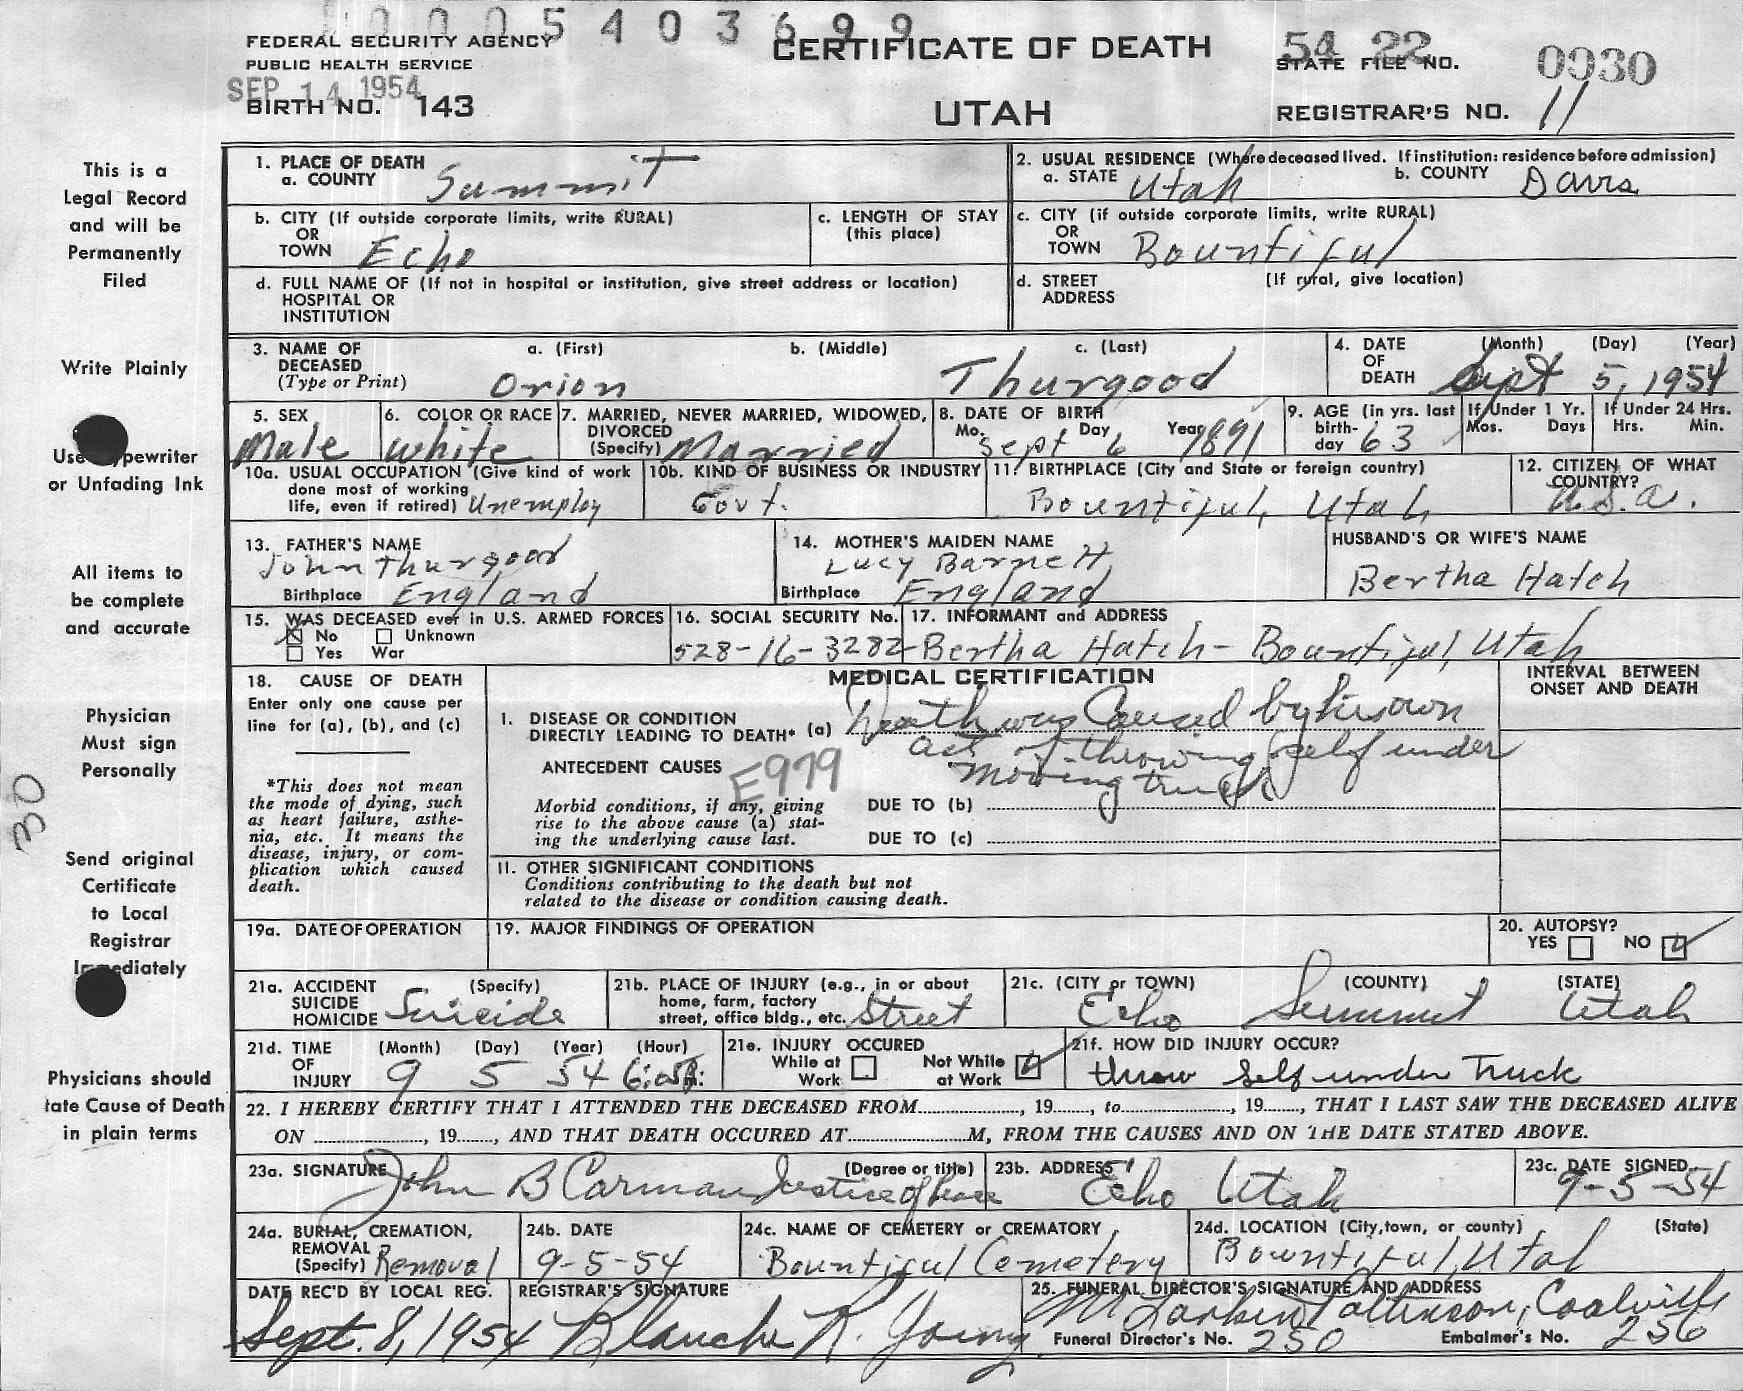 0005403699
FEDERAL SECURITY AGENCY
PUBLIC HEALTH SERVICE
SEP 14 1954
BIRTH NO. 143
CERTIFICATE OF DEATH
UTAH
54 22 0030
STATE FILE NO.
REGISTRAR'S NO. 11
This is a
Legal Record
and will be
Permanently
Filed
Write Plainly
Use Typewriter
or Unfading Ink
All items to
be complete
and accurate
Physician
Must sign
Personally
30
Send original
Certificate
to Local
Registrar
Immediately
Physicians should
tate Cause of Death
in plain terms
1. PLACE OF DEATH
a. COUNTY Summit
2. USUAL RESIDENCE (Where deceased lived. If institution: residence before admission)
a. STATE Utah b. COUNTY Davis
b. CITY (If outside corporate limits, write RURAL)
OR
TOWN Echo
c. LENGTH OF STAY
(this place)
c. CITY (if outside corporate limits, write RURAL)
OR
TOWN Bountiful
d. FULL NAME OF (If not in hospital or institution, give street address or location)
HOSPITAL OR
INSTITUTION
d. STREET (If rural, give location)
ADDRESS
3. NAME OF a. (First) b. (Middle) c. (Last)
DECEASED
(Type or Print) Orion Thurgood
4. DATE (Month) (Day) (Year)
OF
DEATH Sept 5, 1954
5. SEX
Male
6. COLOR OR RACE
White
7. MARRIED, NEVER MARRIED, WIDOWED,
DIVORCED
(Specify) Married
8. DATE OF BIRTH
Mo. Day Year
Sept 6 1891
9. AGE (in yrs. last
birth-
day 63
If Under 1 Yr.
Mos. Days
If Under 24 Hrs.
Hrs. Min.
10a. USUAL OCCUPATION (Give kind of work
done most of working
life, even if retired) Unemploy
10b. KIND OF BUSINESS OR INDUSTRY
Govt.
11. BIRTHPLACE (City and State or foreign country)
Bountiful, Utah
12. CITIZEN OF WHAT
COUNTRY?
U.S.A.
13. FATHER'S NAME
John Thurgood
Birthplace England
14. MOTHER'S MAIDEN NAME
Lucy Barnett
Birthplace England
HUSBAND'S OR WIFE'S NAME
Bertha Hatch
15. WAS DECEASED ever in U.S. ARMED FORCES
No Unknown
Yes War
16. SOCIAL SECURITY No.
528-16-3282
17. INFORMANT and ADDRESS
Bertha Hatch - Bountiful, Utah
18. CAUSE OF DEATH
Enter only one cause per
line for (a), (b), and (c)
*This does not mean
the mode of dying, such
as heart failure, asthe-
nia, etc. It means the
disease, injury, or com-
plication which caused
death.
MEDICAL CERTIFICATION
INTERVAL BETWEEN
ONSET AND DEATH
I. DISEASE OR CONDITION
DIRECTLY LEADING TO DEATH* (a) Death was Caused by his own
act of throwing self under
moving truck
ANTECEDENT CAUSES
E979
Morbid conditions, if any, giving
rise to the above cause (a) stat-
ing the underlying cause last.
DUE TO (b)
DUE TO (c)
II. OTHER SIGNIFICANT CONDITIONS
Conditions contributing to the death but not
related to the disease or condition causing death.
19a. DATE OF OPERATION
19. MAJOR FINDINGS OF OPERATION
20. AUTOPSY?
YES NO
21a. ACCIDENT (Specify)
SUICIDE
HOMICIDE Suicide
21b. PLACE OF INJURY (e.g., in or about
home, farm, factory
street, office bldg., etc. Street
21c. (CITY or TOWN) (COUNTY) (STATE)
Echo Summit Utah
21d. TIME (Month) (Day) (Year) (Hour)
OF
INJURY 9 5 54
21e. INJURY OCCURED
While at Work
Not While at Work
21f. HOW DID INJURY OCCUR?
throw self under Truck
22. I HEREBY CERTIFY THAT I ATTENDED THE DECEASED FROM..............., 19......, to..............., 19......, THAT I LAST SAW THE DECEASED ALIVE
ON ..............., 19......, AND THAT DEATH OCCURED AT...............M, FROM THE CAUSES AND ON THE DATE STATED ABOVE.
23a. SIGNATURE (Degree or title)
John B Carman Justice of Peace
23b. ADDRESS
Echo Utah
23c. DATE SIGNED
9-5-54
24a. BURIAL, CREMATION,
REMOVAL
(Specify) Removal
24b. DATE
9-5-54
24c. NAME OF CEMETERY or CREMATORY
Bountiful Cemetery
24d. LOCATION (City, town, or county) (State)
Bountiful, Utah
DATE REC'D BY LOCAL REG.
Sept. 8, 1954
REGISTRAR'S SIGNATURE
Blanche R. Young
25. FUNERAL DIRECTOR'S SIGNATURE AND ADDRESS
Coalville
Funeral Director's No. 250 Embalmer's No. 256